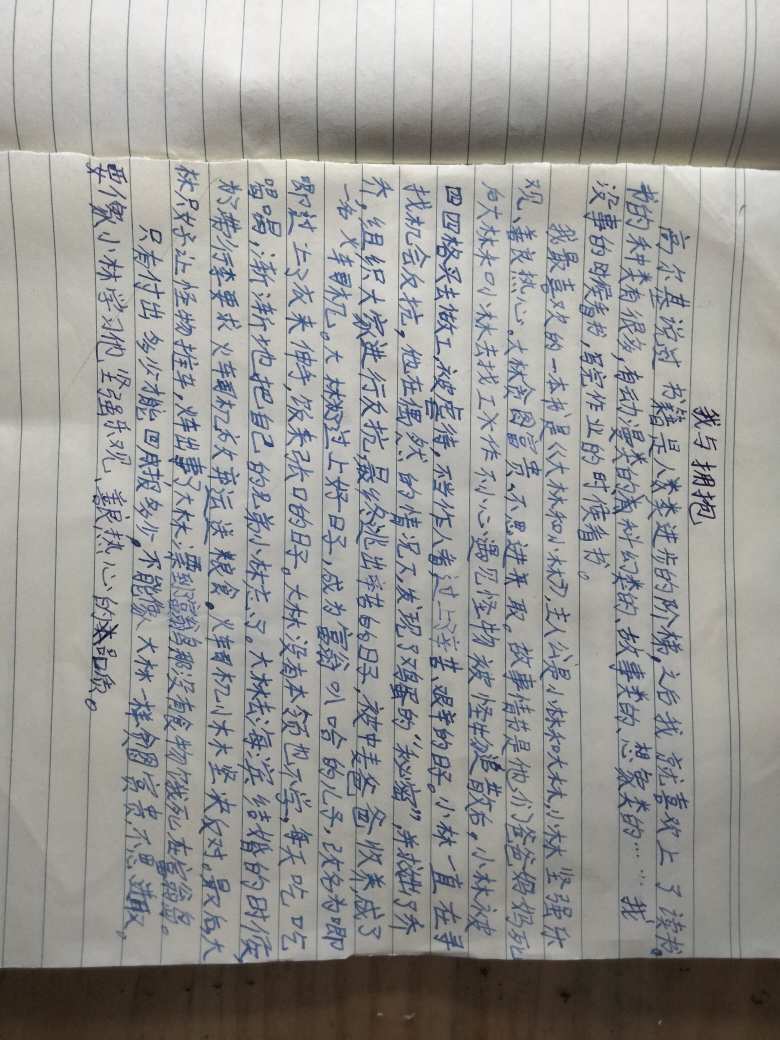 我与拥抱
高尔基说过 书籍是人类进步的阶梯，之后我就喜欢上了读书。
书的种类有很多，有动漫类的，有科幻类的、故事类的、想象类的……我
没事的时候看书，写完作业的时候看书。
我最喜欢的一本书是《大林和小林》，主人公是小林和大林，小林坚强乐
观、善良热心，大林贪图富贵、不思进取。故事情节是他们爸爸妈妈死
后大林和小林去找工作不小心遇见怪物被怪物追散后，小林被
四四格买去做工，被虐待，不当作人看，过上辛苦、艰辛的日子。小林一直在寻
找机会反抗，他在偶然的情况下，发现了鸡蛋的“秘密”并打败了
，组织大家进行反抗，最终逃出辛苦的日子，被中麦爸爸收养成了
一名火车司机。大林却过上好日子，成为富翁叭哈的儿子，改名为唧
唧过上了衣来伸手，饭来张口的日子。大林没有本领也不学，每天吃吃
喝喝，渐渐地把自己的兄弟小林忘了。大林去海滨结婚的时候，
打捞行李要求火车司机放弃运送粮食。火车司机小林坚决反对。最后大
林只好让怪物推车，火车出事了大林漂到富翁岛那没有食物饿死在富翁岛。
只有付出多少才能回报多少，不能像大林一样贪图富贵不思进取。
要像小林学习他坚强乐观、善良热心的品质。